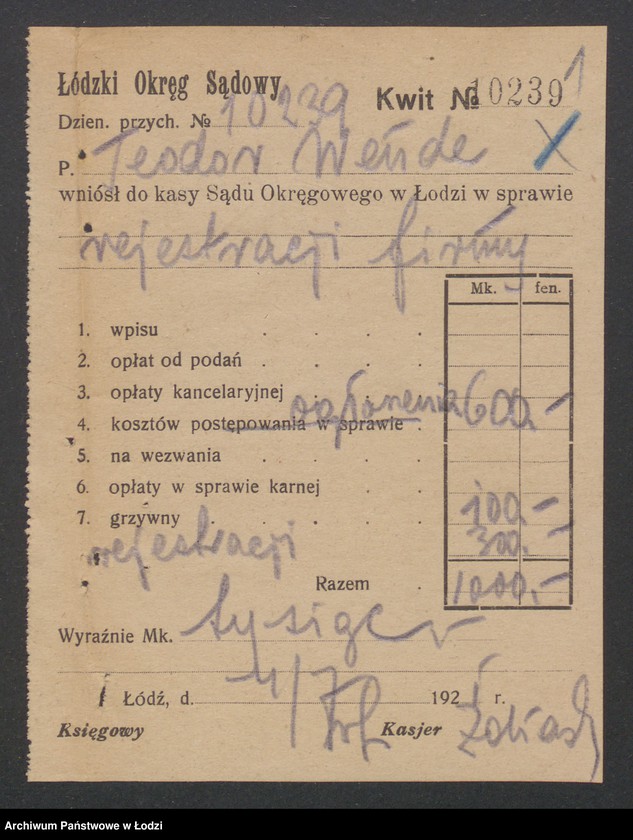 Łódzki Okręg Sądowy
Kwit № 10239
1
Dzien. przych. № 10239
P. Teodor Wende
wniósł do kasy Sądu Okręgowego w Łodzi w sprawie
rejestracji firmy
Mk. fen.
1. wpisu
2. opłat od podań
3. opłaty kancelaryjnej
ogłoszenia 600.—
4. kosztów postępowania w sprawie
5. na wezwania
6. opłaty w sprawie karnej
100.—
7. grzywny
rejestracji 300.—
Razem 1000.—
Wyraźnie Mk. tysiąc
Łódź, d. 192 1 r.
Księgowy Kasjer
Archiwum Państwowe w Łodzi